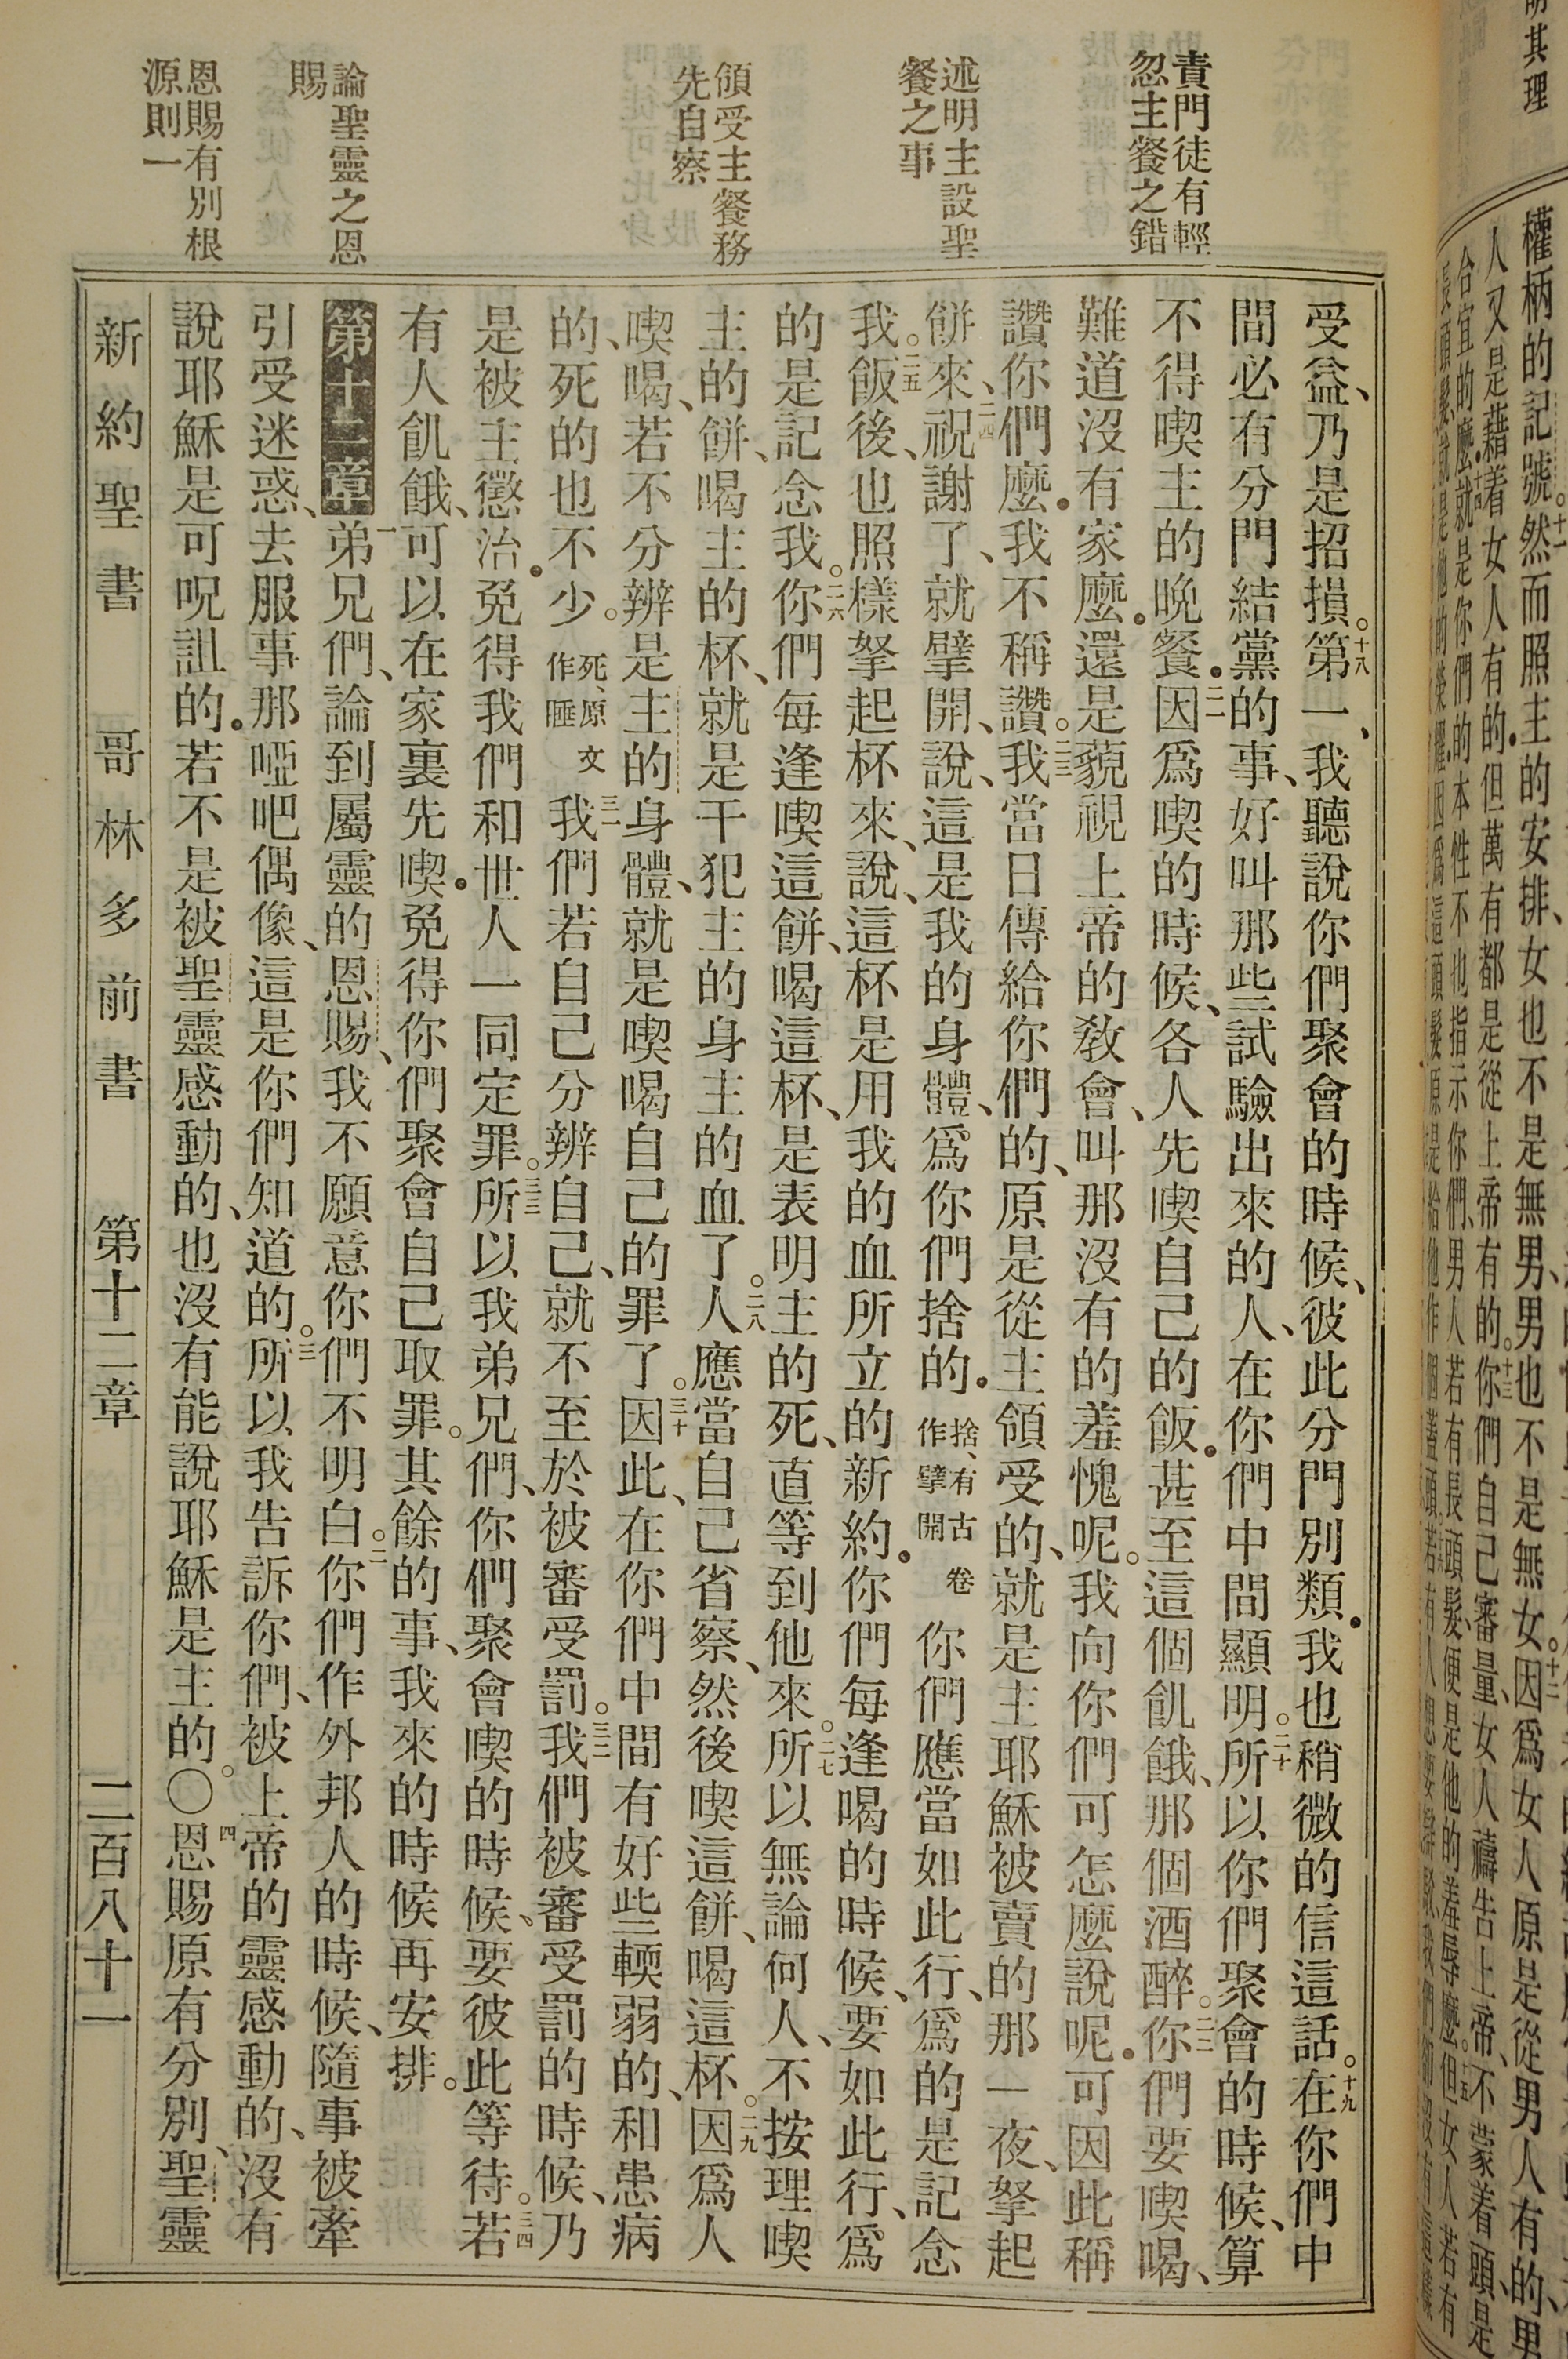 責門徒有輕
忽主餐之錯
述明主設聖
餐之事
領受主餐務
先自察
論聖靈之恩
賜
恩賜有別根
源則一
受益、乃是招損。十八第一、我聽說你們聚會的時候、彼此分門別類．我也稍微的信這話。十九在你們中
間必有分門結黨的事、好叫那些試驗出來的人、在你們中間顯明。二十所以你們聚會的時候、算
不得喫主的晚餐．二一因爲喫的時候、各人先喫自己的飯．甚至這個飢餓、那個酒醉。二二你們要喫喝、
難道沒有家麼．還是藐視上帝的教會、叫那沒有的羞愧呢。我向你們可怎麼說呢．可因此稱
讚你們麼．我不稱讚。二三我當日傳給你們的、原是從主領受的、就是主耶穌被賣的那一夜、拏起
餅來、二四祝謝了、就擘開、說、這是我的身體、爲你們捨的．捨、有古卷作擘開你們應當如此行、爲的是記念
我。二五飯後、也照樣拏起杯來、說、這杯是用我的血所立的新約．你們每逢喝的時候、要如此行、爲
的是記念我。二六你們每逢喫這餅、喝這杯、是表明主的死、直等到他來。二七所以無論何人、不按理喫
主的餅、喝主的杯、就是干犯主的身主的血了。二八人應當自己省察、然後喫這餅、喝這杯。二九因爲人
喫喝、若不分辨是主的身體、就是喫喝自己的罪了。三十因此、在你們中間有好些輭弱的、和患病
的、死的也不少。死、原文作睡三一我們若自己分辨自己、就不至於被審受罰。三二我們被審受罰的時候、乃
是被主懲治．免得我們和世人一同定罪。三三所以我弟兄們、你們聚會喫的時候、要彼此等待。三四若
有人飢餓、可以在家裏先喫．免得你們聚會自己取罪。其餘的事、我來的時候再安排。
第十二章 一弟兄們、論到屬靈的恩賜、我不願意你們不明白。二你們作外邦人的時候、隨事被牽
引受迷惑、去服事那啞吧偶像、這是你們知道的。三所以我告訴你們、被上帝的靈感動的、沒有
說耶穌是可呪詛的．若不是被聖靈感動的、也沒有能說耶穌是主的。〇四恩賜原有分別、聖靈
新約聖書 哥林多前書 第十二章 二百八十一